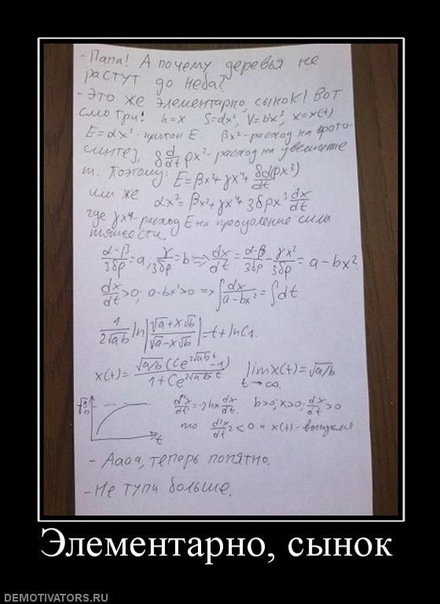 - Папа! А почему деревья не
растут до неба?
- Это же элементарно, сынок! Вот
смотри! h=x S=dx², V=bx³, x=x(t)
E=αx² - приток E. βx² - расход на фото-
синтез, δ d/dt ρx³ - расход на увеличение
m. Поэтому: E=βx²+γx⁴+ δd/dt(ρx³)
или же αx²=βx²+γx⁴+3δρx² dx/dt
где γx⁴ - расход E на преодоление силы
тяжести.
(α-β)/3δρ = a, γ/3δρ = b => dx/dt = (α-β)/3δρ - γx²/3δρ = a - bx².
dx/dt > 0, a-bx² > 0 => ∫dx/(a-bx²) = ∫dt
1/(2√ab) ln|(√a+x√b)/(√a-x√b)| = t + ln C₁.
x(t) = √(a/b) (Ce^(2√ab t) - 1)/(1+Ce^(2√ab t)) lim x(t) = √a/b
t→∞
√(a/b) d²x/dt² = -2bx dx/dt. b>0, x>0, dx/dt>0
t то d²x/dt² < 0 и x(t) - выпуклая
- Аааа, теперь понятно.
- Не тупи больше.
Элементарно, сынок
DEMOTIVATORS.RU